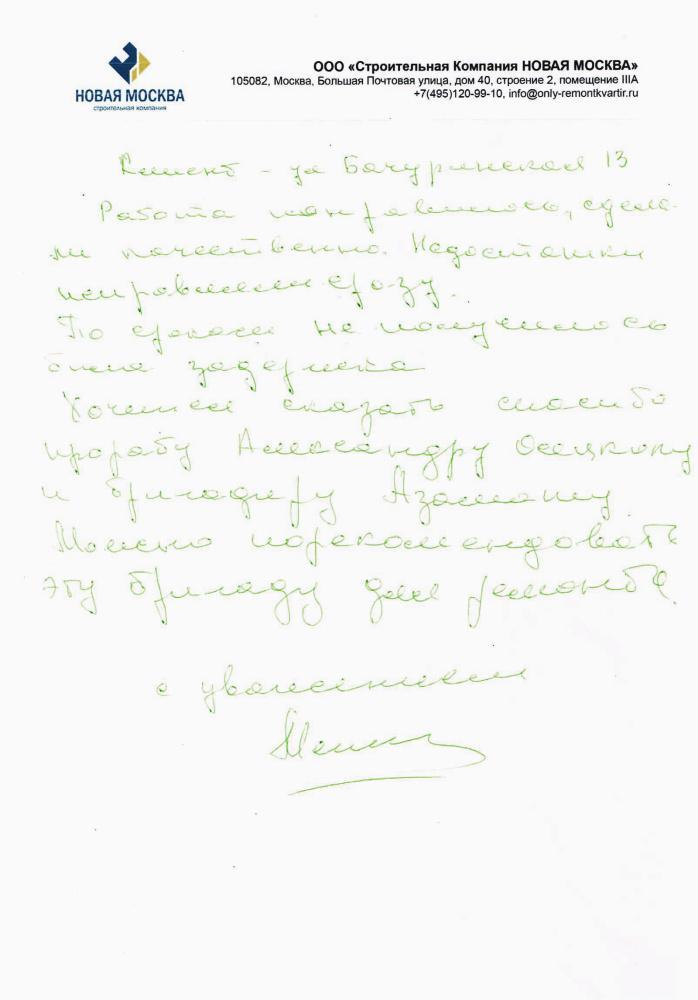 НОВАЯ МОСКВА
строительная компания
ООО «Строительная Компания НОВАЯ МОСКВА»
105082, Москва, Большая Почтовая улица, дом 40, строение 2, помещение IIIА
+7(495)120-99-10, info@only-remontkvartir.ru
Клиент - ул Бачуринская 13
Работа понравилось, сдела-
ли качественно. Недостатки
исправляли сразу.
По срокам не получилось
была задержка
Хочется сказать спасибо
прорабу Александру Осецкому
и бригадиру Азамату
Можно порекомендовать
эту бригаду для ремонта.
с уважением